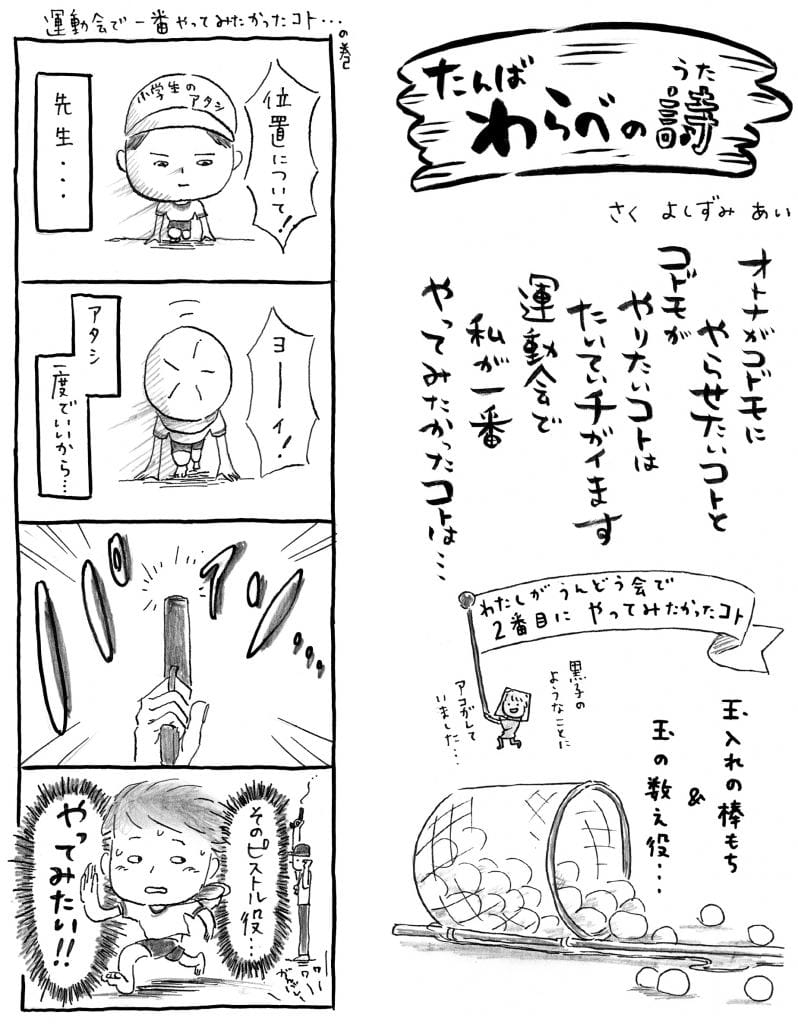 たんば
わらべの詩
うた
さく よしずみ あい
オトナがコドモに
やらせたいコトと
コドモが
やりたいコトは
たいていチガイます
運動会で
私が一番
やってみたかったコトは…
わたしが うんどう会で
2番目に やってみたかったコト
黒子の
ようなことに
アコガレて
いました…
玉入れの棒もち
&
玉の数え役…
運動会で一番やってみたかったコト…の巻
小学生の
アタシ
位置について!!
先生・・・
ヨーイ!
アタシ
一度でいいから…
パァン…
そのピストル役…
やってみたい!!